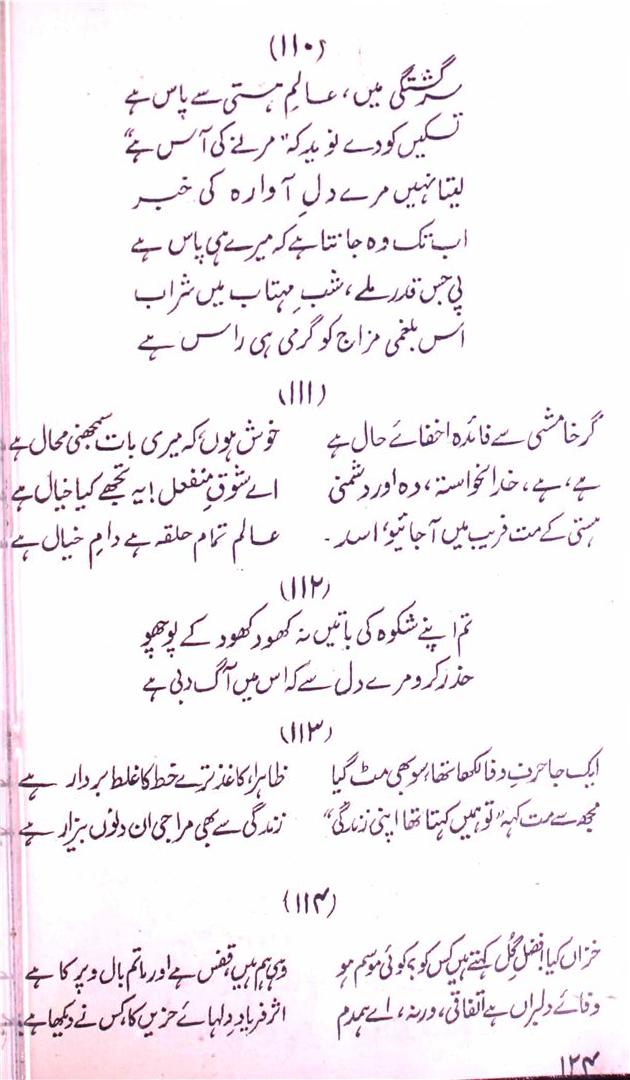 (۱۱۰)
سرگشتگی میں، عالمِ ہستی سے یاس ہے
تسکیں کو دے نوید کہ "مرنے کی آس ہے"
لیتا نہیں مرے دلِ آوارہ کی خبر
اب تک وہ جانتا ہے کہ میرے ہی پاس ہے
پی جس قدر ملے، شبِ مہتاب میں شراب
اس بلغمی مزاج کو گرمی ہی راس ہے
(۱۱۱)
گر خامشی سے فائدہ اخفائے حال ہے خوش ہوں کہ میری بات سمجھنی محال ہے
ہے، ہے، خدانخواستہ، وہ اور دشمنی اے شوقِ منفعل! یہ تجھے کیا خیال ہے
ہستی کے مت فریب میں آجائیو، اسد۔ عالم تمام حلقہ ہے دامِ خیال ہے
(۱۱۲)
تم اپنے شکوہ کی باتیں نہ کھود کھود کے پوچھو
حذر کرو مرے دل سے کہ اس میں آگ دبی ہے
(۱۱۳)
ایک جا حرفِ وفا لکھا تھا، سو بھی مٹ گیا ظاہرا، کاغذ ترے خط کا غلط بردار ہے
مجھ سے مت کہہ "تو ہمیں کہتا تھا اپنی زندگی" زندگی سے بھی مرا جی ان دنوں بیزار ہے
(۱۱۴)
خزاں کیا! فصلِ گُل کہتے ہیں کس کو؟ کوئی موسم ہو وہی ہم ہیں، قفس ہے اور ماتم بال و پر کا ہے
وفائے دلبراں ہے اتفاقی، ورنہ، اے ہمدم اثر فریادِ دلہائے حزیں کا، کس نے دیکھا ہے
۱۲۴